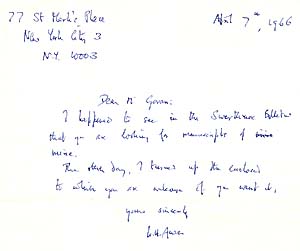 77 St Mark's Place
New York City 3
N.Y. 10003
April 7th, 1966
Dear Mr Govan:
I happened to see in the Swarthmore Bulletin
that you are looking for manuscripts of
mine.
The other day, I turned up the enclosed
to which you are welcome if you want it,
yours sincerely
W.H. Auden